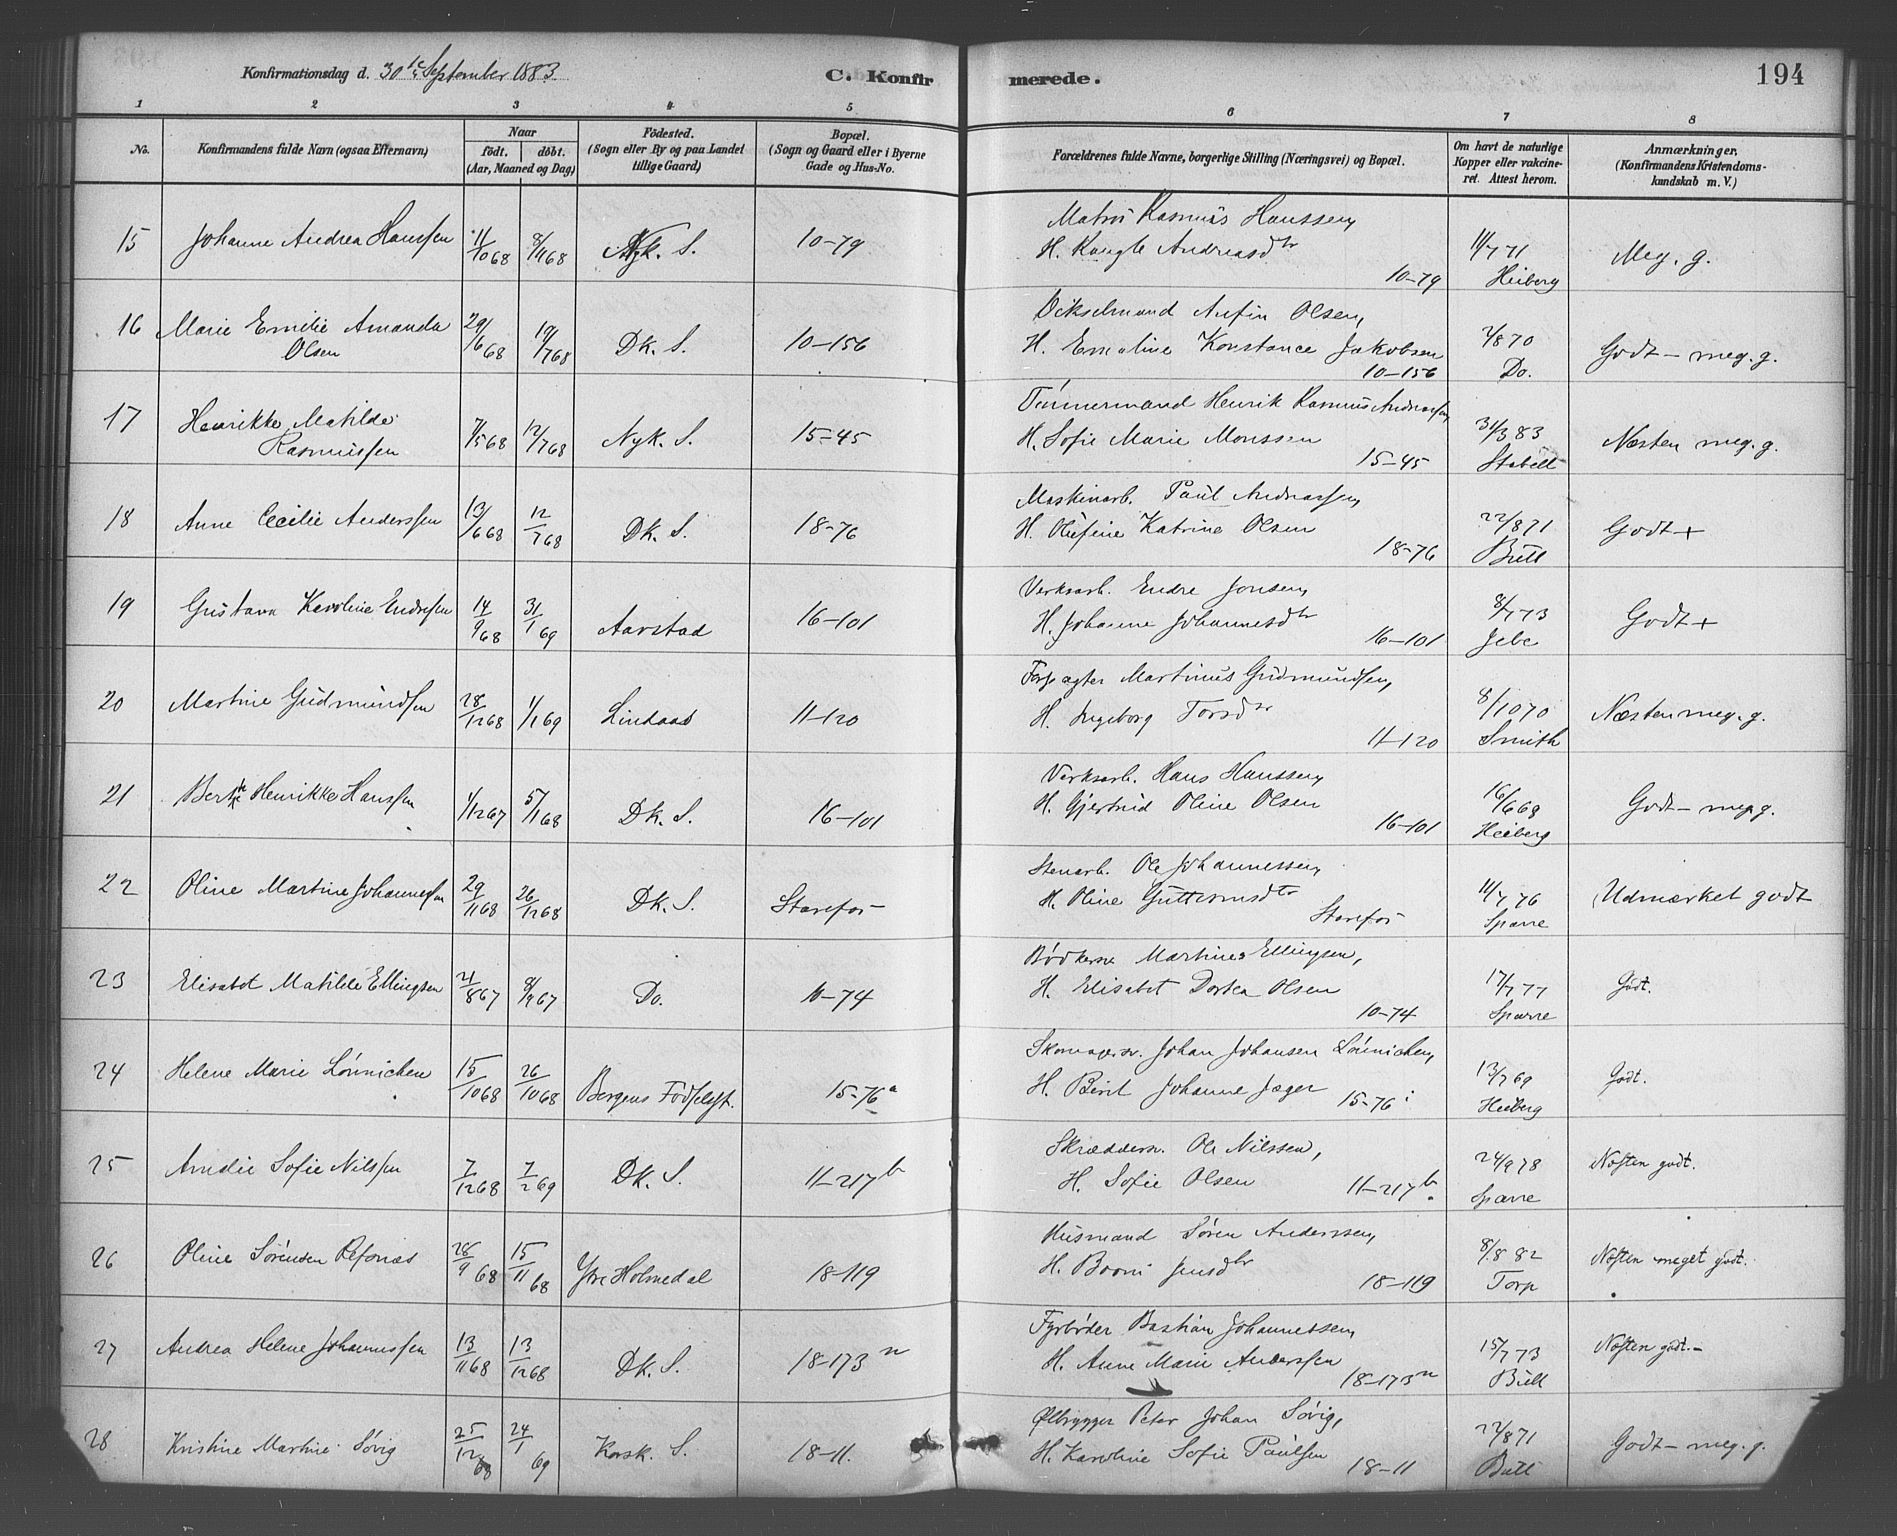 Konfirmationsdag d. 30te September 1883. C. Konfir merede. 194
1 2 3 4 5 6 7 8
No. Konfirmandens fulde Navn (ogsaa Efternavn) Naar födt. döbt. (Aar, Maaned og Dag) Födested. (Sogn eller By og paa Landet tillige Gaard.) Bopæl. (Sogn og Gaard eller i Byerne Gade og Hus-No. Forældrenes fulde Navne, borgerlige Stilling (Næringsvei) og Bopæl. Om havt de naturlige Kopper eller vakcineret. Attest herom. Anmærkninger. (Konfirmandens Kristendomskundskab m. V.)
15 Johanne Andrea Hanssen 11/10 68 8/11 68 Nyk. S. 10-79 Matros Rasmus Hanssen, 11/7 71
H. Andreasdtr 10-79 Heiberg Meg. g.
16 Marie Emilie Amanda Olsen 29/6 68 19/7 68 Dk. S. 10-156 Olsen, 2/8 70
H. Emeline Konstance Jakobsen 10-156 Do. Godt - meg. g.
17 Henrikke Matilde Rasmussen 7/5 68 12/7 68 Nyk. S. 15-45 Tømmermand Henrik Rasmus Andreassen, 31/3 83
H. Sofie Marie Monssen 15-45 Stabell Næsten meg. g.
18 Anne Cecilie Anderssen 13/6 68 12/7 68 Dk. S. 18-76 Maskinarb. Paul Andreassen, 22/8 71
H. Olufine Katrine Olsen 18-76 Bull Godt +
19 Gustava Karoline Endresen 14/9 68 31/1 69 Aarstad 16-101 Verksarb. Endre Jonsen, 8/7 73
H. Johanne Johannesdtr 16-101 Jebe Godt +
20 Martine Gudmundsen 28/12 68 1/1 69 Lindaas 11-120 Forpagter Martinus Gudmundsen, 8/10 70
H. Ingeborg Torsdtr 11-120 Smith Næsten meg. g.
21 Berthe Henrikke Hanssen 1/12 67 5/1 68 Dk. S. 16-101 Verksarb. Hans Hanssen, 16/6 68
H. Gjertrud Oline Olsen 16-101 Heiberg Godt - meg. g.
22 Oline Martine Johannessen 29/11 68 26/12 68 Dk. S. Starefos Stenarb. Ole Johannessen, 11/7 76
H. Oline Guttormsdtr Starefos Sparre Udmærket godt
23 Elisabet Matilde Ellingsen 21/8 67 8/9 67 Do. 10-74 Bødkersv. Martines Ellingsen, 17/7 77
H. Elisabet Dortea Olsen 10-74 Sparre Godt.
24 Helene Marie Lönnichen 15/10 68 26/10 68 Bergens Födselsst. 15-76a Skomagersv. Johan Johansen Lönnichen, 13/7 69
H. Berit Johanne Jæger 15-76 Heiberg Godt.
25 Amalie Sofie Nilssen 7/12 68 7/2 69 Dk. S. 11-217b Skræddersv. Ole Nilssen, 24/9 78
H. Sofie Olsen 11-217b Sparre Næsten godt.
26 Oline Sørensen Refsnæs 28/9 68 15/11 68 Ytre Holmedal 18-119 Husmand Søren Anderssen, 8/8 82
H. Jensdtr 18-119 Torp Næsten meget godt.
27 Andrea Helene Johannessen 13/11 68 13/12 68 Dk. S. 18-173n Fyrbøder Bastian Johannessen, 15/7 73
H. Anne Marie Anderssen 18-173n Bull Næsten godt.-
28 Kristine Martine Sövig 25/12 68 24/1 69 Korsk. S. 18-11. Ølbrygger Peter Johan Sövig, 22/8 71
H. Karoline Sofie Paulsen 18-11 Bull Godt - meg. g.